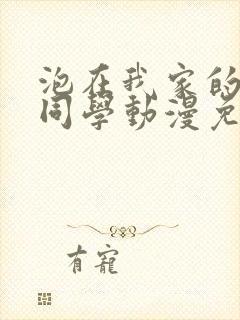 泡在我家的
同學動漫免
有寵